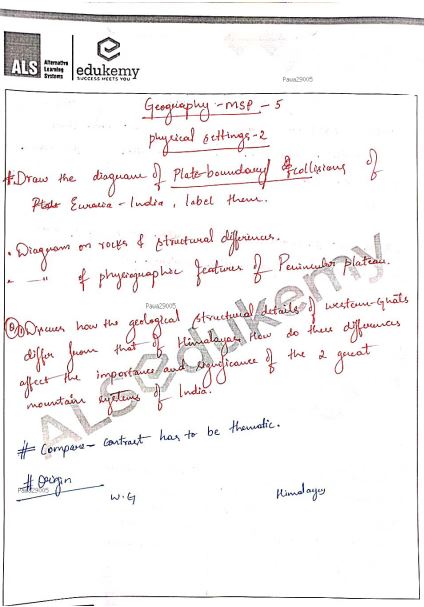 ALS Alternative Learning Systems
edukemy
SUCCESS MEETS YOU
Paua29005
Geography - MSP - 5
physical settings - 2
# Draw the diagram of Plate boundary/ collisions of
Eurasia - India, label them.
• Diagram on rocks & structural differences.
" — " of physiographic features of Peninsular plateau.
Paua29005
Q1) Discuss how the geological structural details of western-Ghats
differ from that of Himalayas. How do these differences
affect the importance and significance of the 2 great
mountain systems of India.
ALS@edukemy
# Compare - contrast has to be thematic.
# Origin
Paua29005
W.G Himalayas